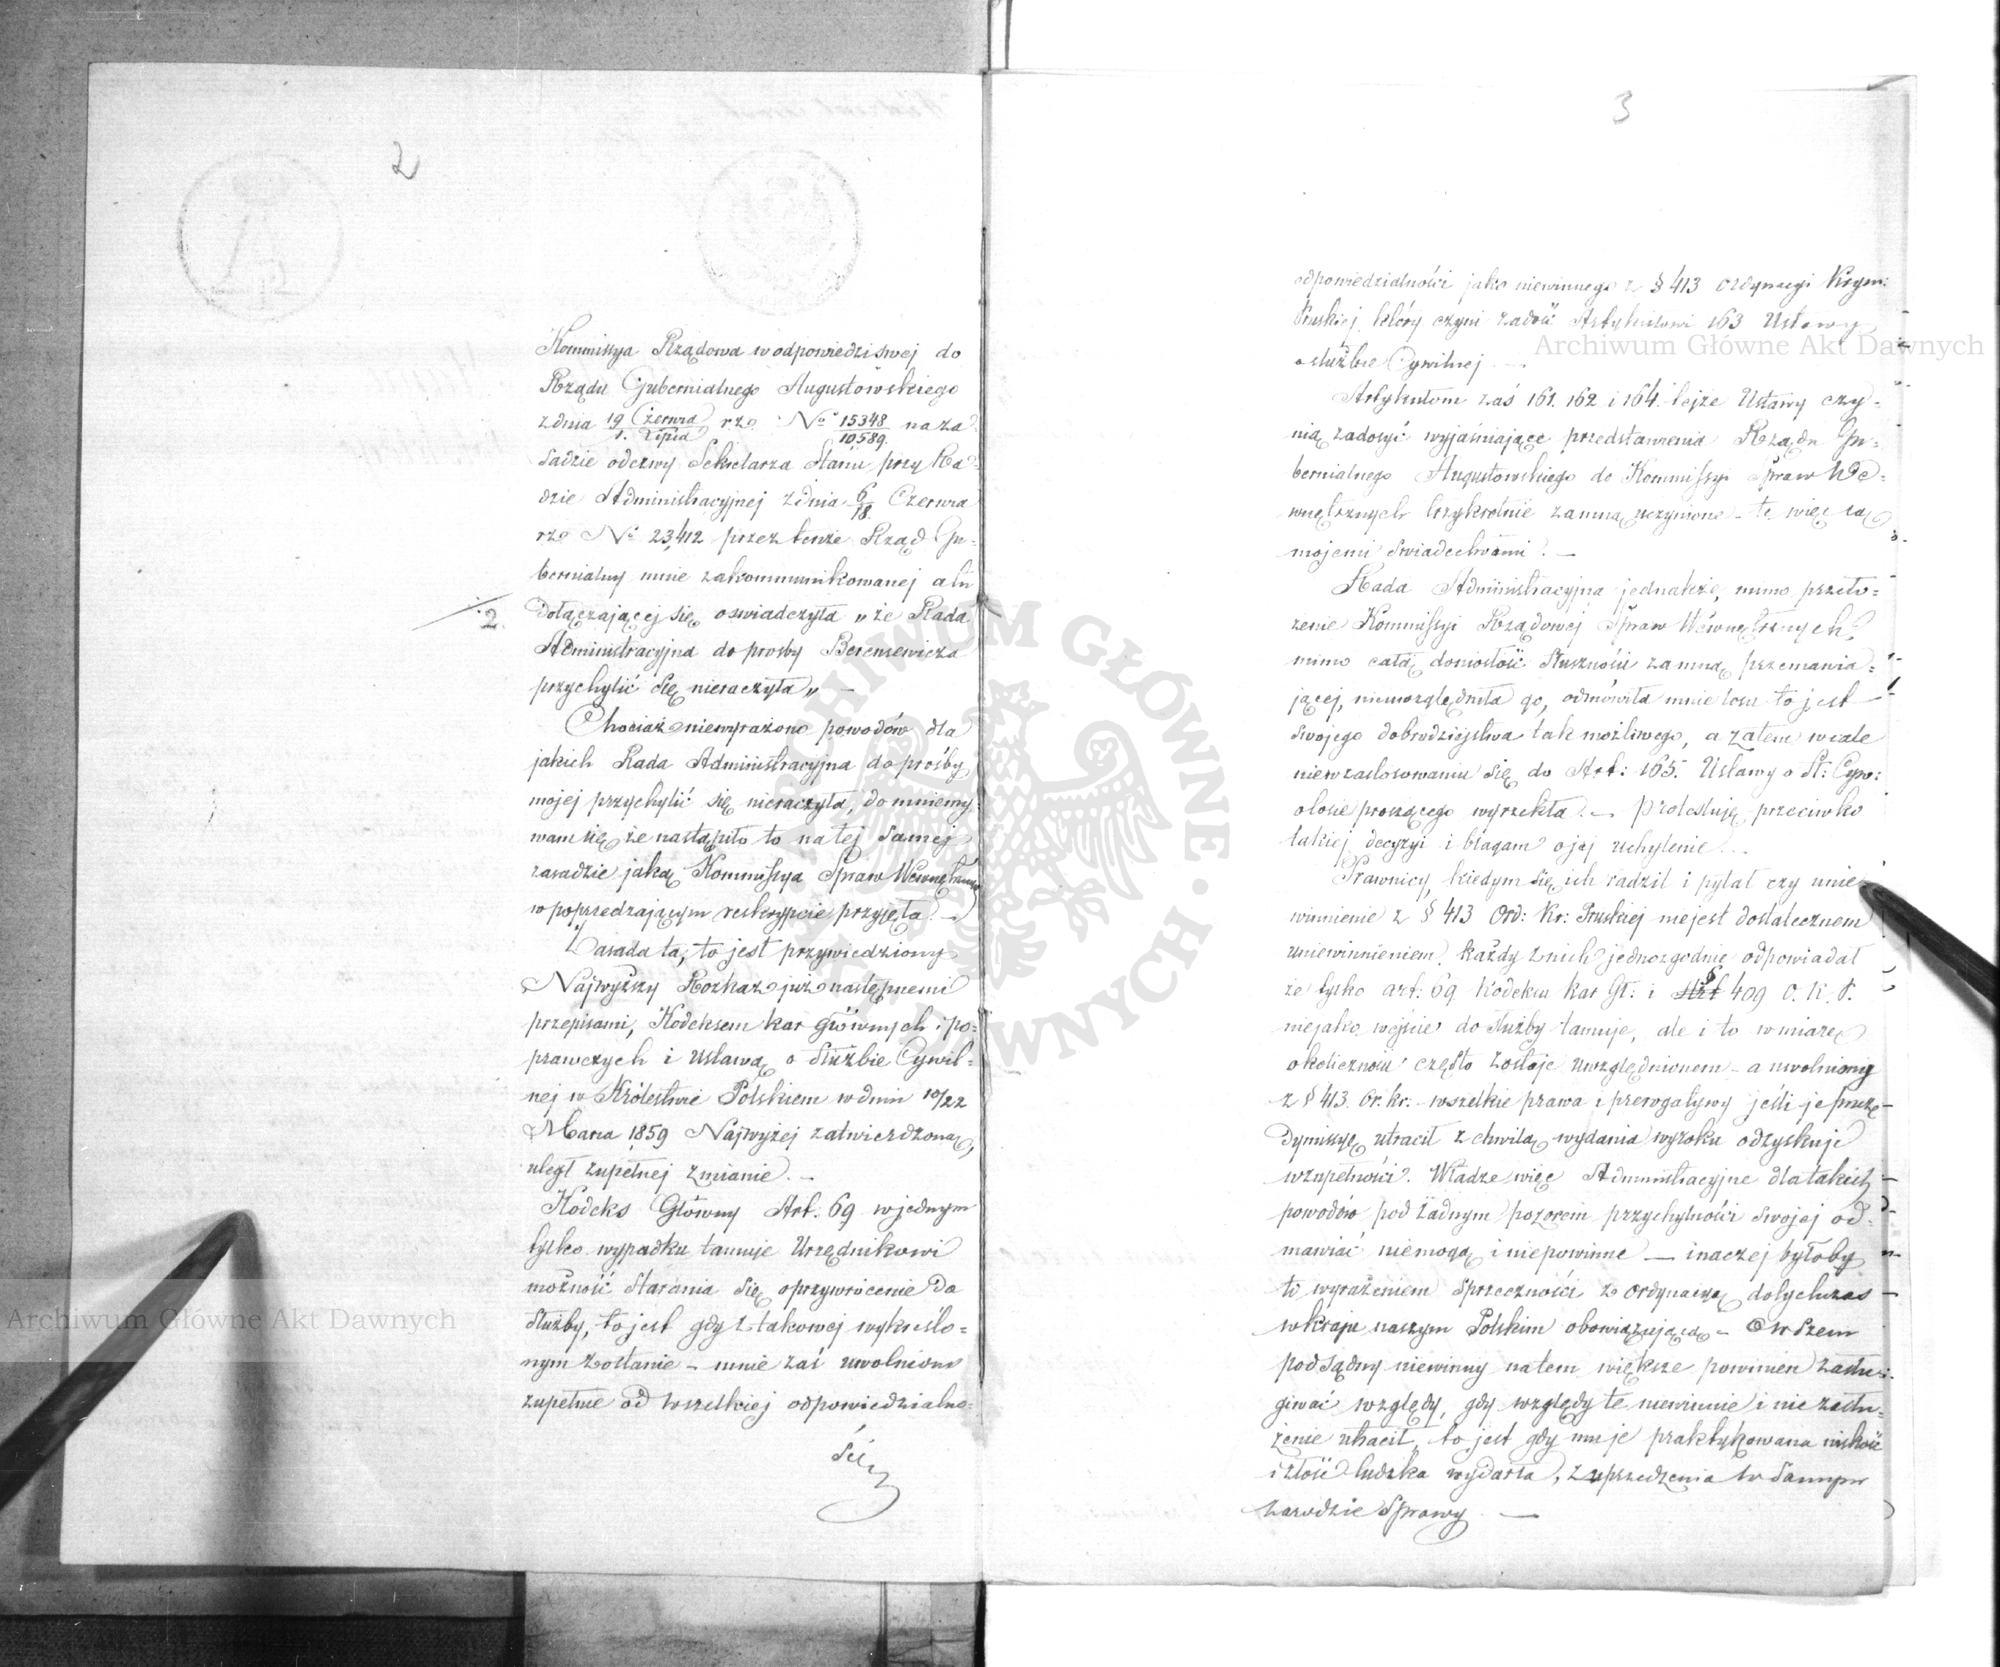 2
Kommissya Rządowa w odpowiedzi swej do
Rządu Gubernialnego Augustowskiego
z dnia 19 Czerwca / 1. Lipca r.z. No 15348 / 10589. na za-
sadzie odezwy Sekretarza Stanu przy Ra-
dzie Administracyjnej z dnia 6/18. Czerwca
r.z. No 23,412 przez tenże Rząd Gu-
bernialny mnie zakommunikowanej a tu
dołączającej się oswiadczyła „że Rada
2.
Administracyjna do prosby Berensewicza
przychylić się nieraczyła„ —
Chociaż niewyrażono powodów dla
jakich Rada Administracyjna do prośby
mojej przychylić się nieraczyła, domniemy-
wam się że nastąpiło to na tej samej
zasadzie jaką Kommissya Spraw Wewnętrznych
w poprzedzającym reskrypcie przyjęła. —
Zasada ta, to jest przywiedziony
Najwyższy Rozkaz już następnemi
przepisami, Kodeksem kar głównych i po-
prawczych i Ustawą o Służbie Cywil-
nej w Królestwie Polskiem w dniu 10/22
Marca 1859 Najwyżej zatwierdzoną,
uległ zupełnej zmianie. —
Kodeks Główny Art. 69 w jednym
tylko wypadku tamuje Urzędnikowi
możność starania się o przywrócenie do
służby, to jest gdy z takowej wykreślo-
nym zostanie — mnie zaś uwolniono
zupełnie od wszelkiej odpowiedzialno-
ści
3
odpowiedzialności jako niewinnego z § 413 Ordynacyi Krym:
Pruskiej, który czyni zadość Artykułowi 163 Ustawy
o służbie Cywilnej —
Artykułom zaś 161. 162 i 164. tejże Ustawy czy-
nią zadosyć wyjaśniające przedstawienia Rządu Gu-
bernialnego Augustowskiego do Kommissyi Spraw We-
wnętrznych trzykrotnie za mną uczynione — te więc są
mojemi świadectwami. —
Rada Administracyjna jednakże, mimo przeło-
żenie Kommissyi Rządowej Spraw Wewnętrznych,
mimo całą doniosłość słuszności za mną przemawia-
jącej, nieuwzględniła go, odmówiła mnie losu to jest
swojego dobrodziejstwa tak możliwego, a zatem wcale
niewzastosowaniu się do Art: 165. Ustawy o Sł: Cyw:
o losie proszącego wyrzekła. — Protestuję przeciwko
takiej decyzyi i błagam o jej uchylenie. —
Prawnicy, kiedym się ich radził i pytał czy unie
winnienie z § 413 Ord: Kr: Pruskiej niejest dostatecznem
uniewinnieniem, każdy z nich jednozgodnie odpowiadał
że tylko art: 69 Kodeksu Kar Gł: i § 409 O. K. P.
niejako wejście do służby tamuje, ale i to w miarę
okoliczności często zostaje uwzględnionem — a uwolniony
z § 413. Or. kr. wszelkie prawa i prerogatywy jeśli je przez
dymissyę utracił z chwilą wydania wyroku odzyskuje
w zupełności. Władze więc Administracyjne dla takich
powodów pod żadnym pozorem przychylności swojej od-
mawiać niemogą i niepowinne — inaczej byłoby
to wyrażeniem sprzeczności z Ordynacyą dotychczas
w kraju naszym Polskim obowiązującą — Owszem
podsądny niewinny na tem większe powinien zasłu-
giwać względy, gdy względy te niewinnie i nie zasłu-
żenie utracił, to jest gdy mu je praktykowana niskość
i złość ludzka wydarła, z uprzedzenia w samym
zarodzie sprawy. —
Archiwum Główne Akt Dawnych
Archiwum Główne Akt Dawnych
ARCHIWUM GŁÓWNE AKT DAWNYCH